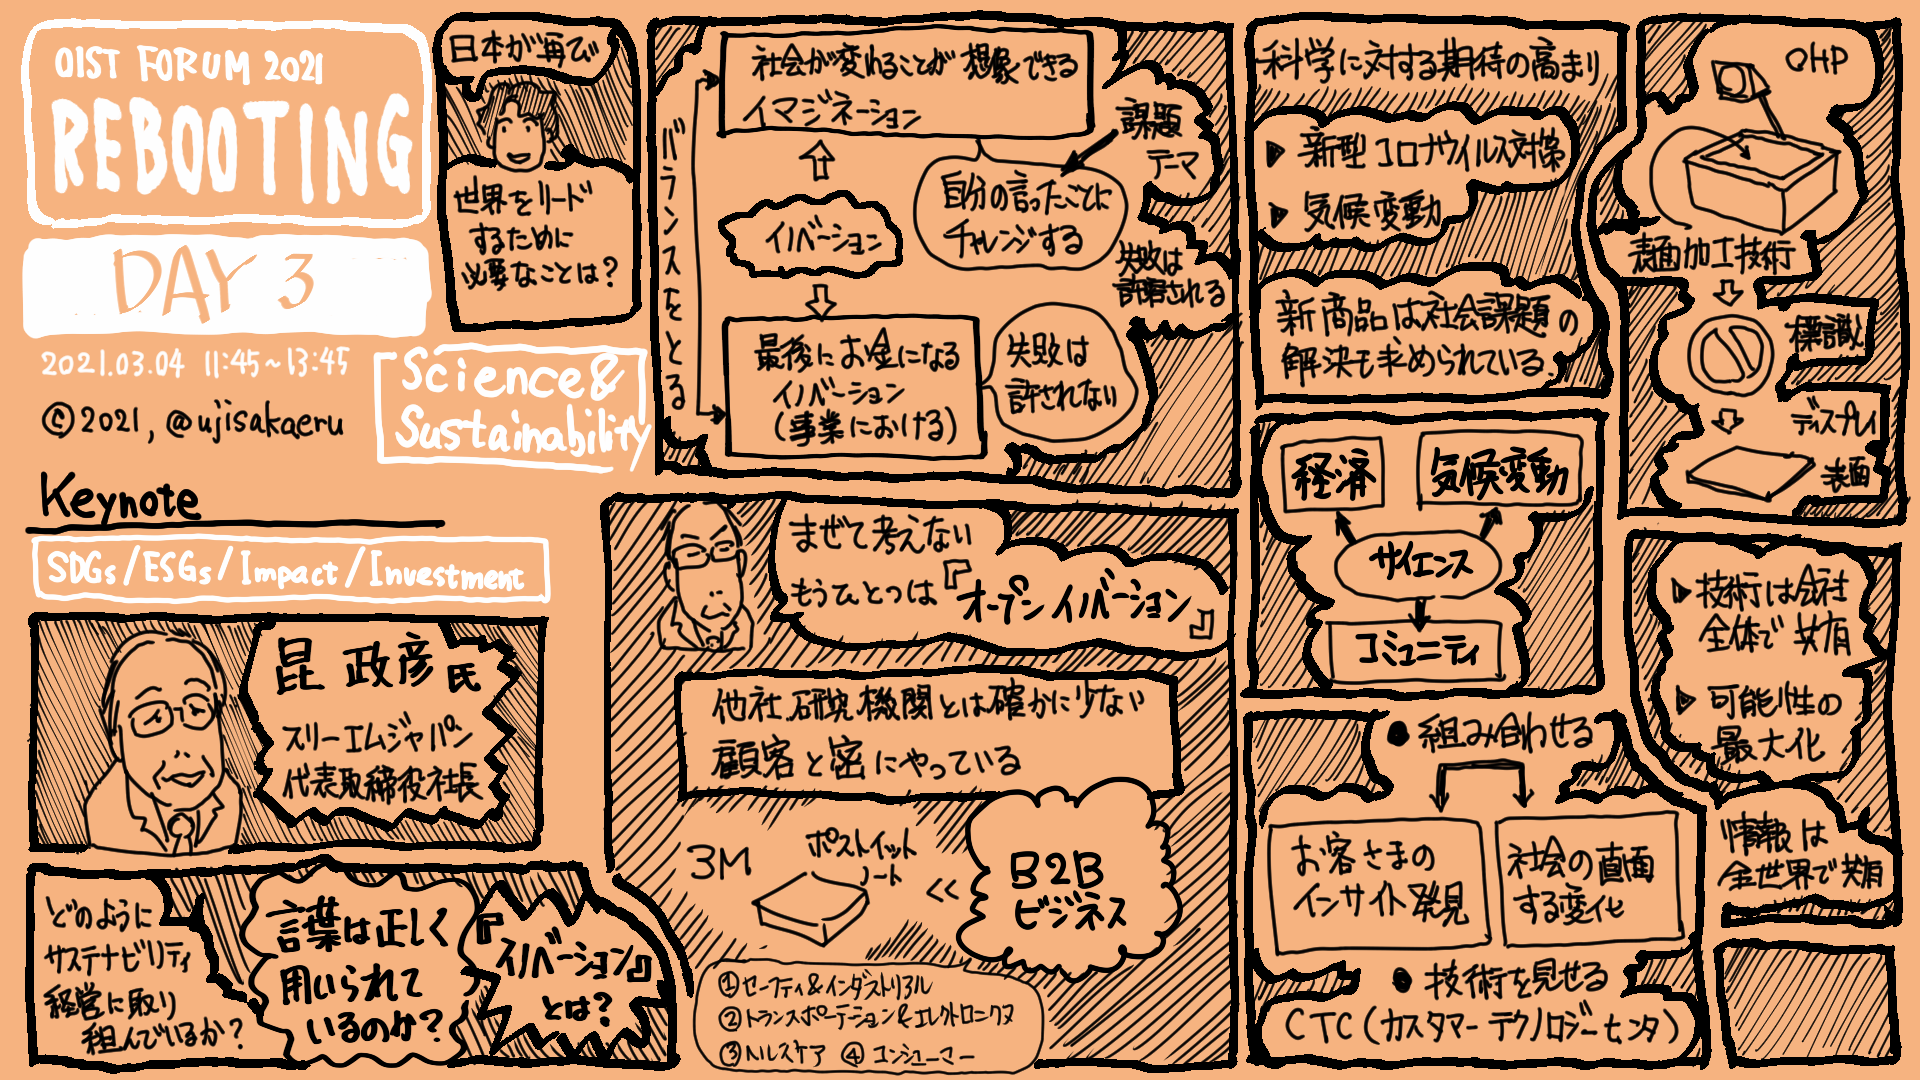 OIST FORUM 2021
REBOOTING
DAY 3
2021.03.04 11:45~13:45
©2021, @ujisakaeru
Science &
Sustainability
Keynote
SDGs/ESGs/Impact/Investment
昆 政彦 氏
スリーエムジャパン
代表取締役社長
どのように
サステナビリティ
経営に取り
組んでいるか?
言葉は正しく
用いられて
いるのか?
『イノベーション』
とは?
日本が再び
世界をリード
するために
必要なことは?
バランスをとる
社会が変れることが想像できる
イマジネーション
イノベーション
最後にお金になる
イノベーション
(事業における)
課題
テーマ
自分の言ったことに
チャレンジする
失敗は
許容される
失敗は
許されない
まぜて考えない
もうひとつは『オープンイノベーション』
他社、研究機関とは確かに少ない
顧客と密にやっている
3M
ポストイット
ノート
<<
B2B
ビジネス
①セーフティ&インダストリアル
②トランスポーテーション&エレクトロニクス
③ヘルスケア ④コンシューマー
科学に対する期待の高まり
▶新型コロナウイルス対策
▶気候変動
新商品は社会課題の
解決も求められている.
経済
気候変動
サイエンス
コミュニティ
●組み合わせる
お客さまの
インサイト発見
社会の直面
する変化
●技術を見せる
CTC(カスタマーテクノロジーセンタ)
OHP
表面加工技術
標識
ディスプレイ
表面
▶技術は会社
全体で共有
▶可能性の
最大化
情報は
全世界で共有